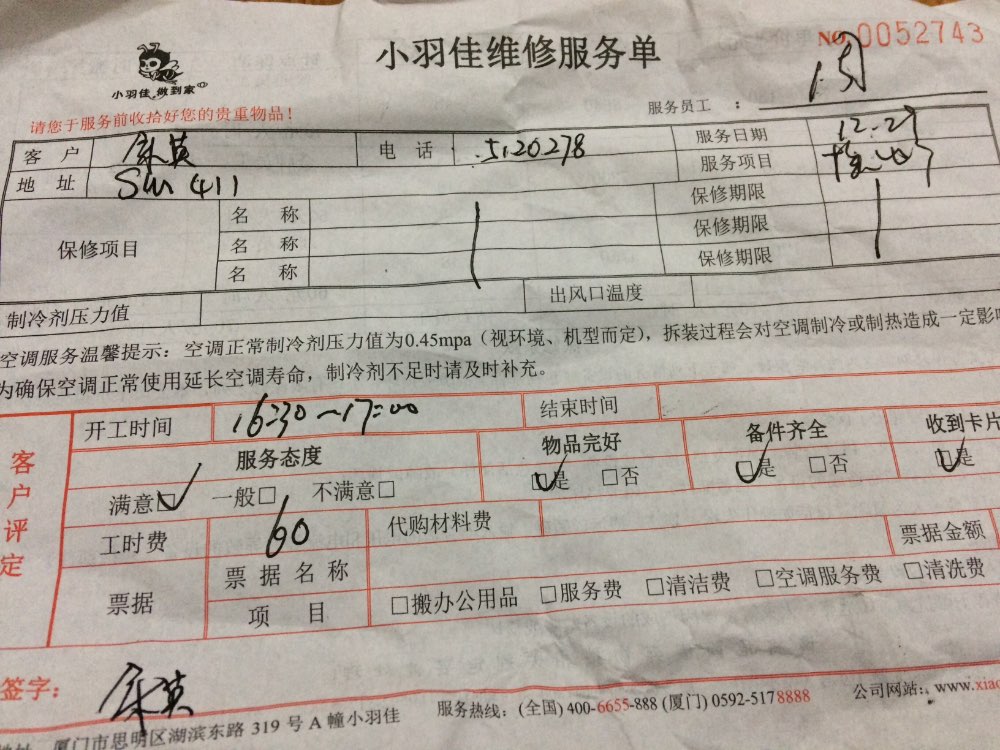 小羽佳维修服务单
NO. 0052743
小羽佳 做到家
请您于服务前收拾好您的贵重物品！
服务员工 ：
客 户 康英 电 话 5120278 服务日期 12.27
地 址 411 服务项目
保修项目 名 称 保修期限
名 称 保修期限
名 称 保修期限
制冷剂压力值 出风口温度
空调服务温馨提示：空调正常制冷剂压力值为0.45mpa（视环境、机型而定），拆装过程会对空调制冷或制热造成一定影
为确保空调正常使用延长空调寿命，制冷剂不足时请及时补充。
客户评定
开工时间 16:30~17:00 结束时间
服务态度 物品完好 备件齐全 收到卡片
满意□ 一般□ 不满意□ □是 □否 □是 □否 □是
工时费 60 代购材料费
票据 票据名称 票据金额
项 目 □搬办公用品 □服务费 □清洁费 □空调服务费 □清洗费
签字： 康英
厦门市思明区湖滨东路 319 号 A 幢小羽佳 服务热线：(全国) 400-6655-888 (厦门) 0592-5178888 公司网站：www.xiao